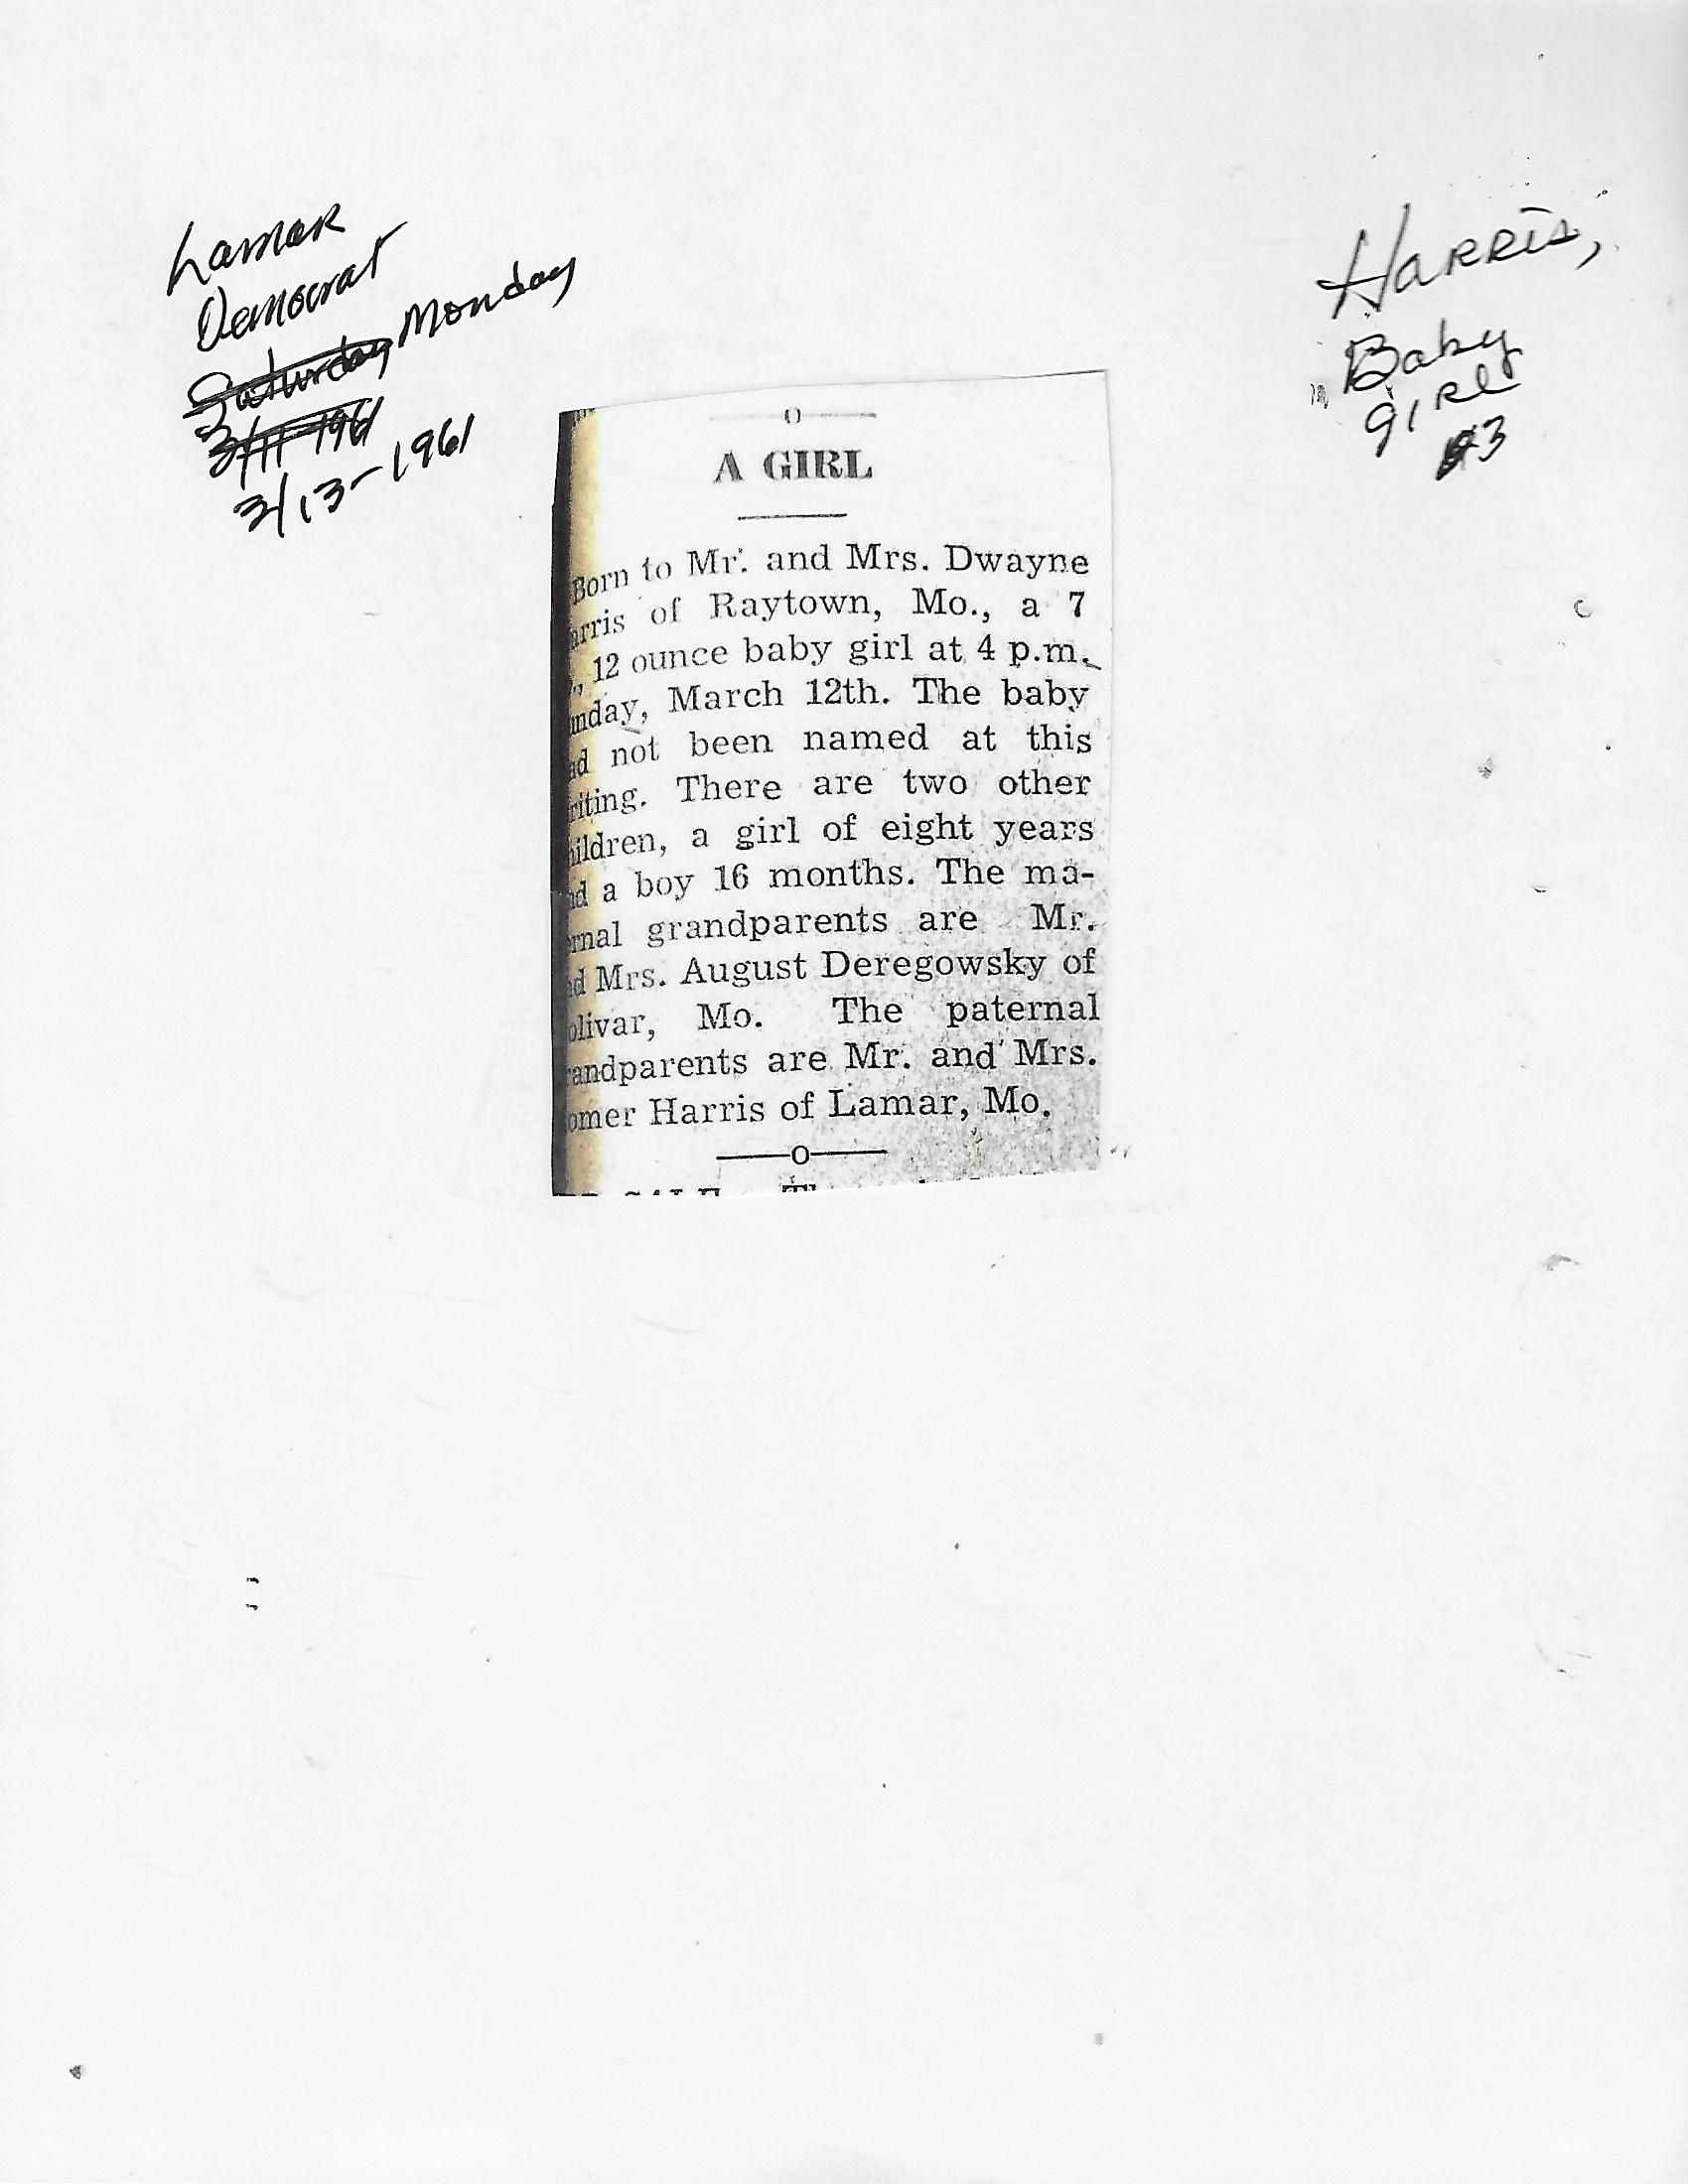 Lamar
Democrat
Saturday Monday
3/11-1961
3/13-1961
Harris,
Baby
girl
#3
A GIRL
Born to Mr. and Mrs. Dwayne
arris of Raytown, Mo., a 7
., 12 ounce baby girl at 4 p.m.
unday, March 12th. The baby
ad not been named at this
riting. There are two other
hildren, a girl of eight years
nd a boy 16 months. The ma-
ernal grandparents are Mr.
nd Mrs. August Deregowsky of
olivar, Mo. The paternal
randparents are Mr. and Mrs.
omer Harris of Lamar, Mo.